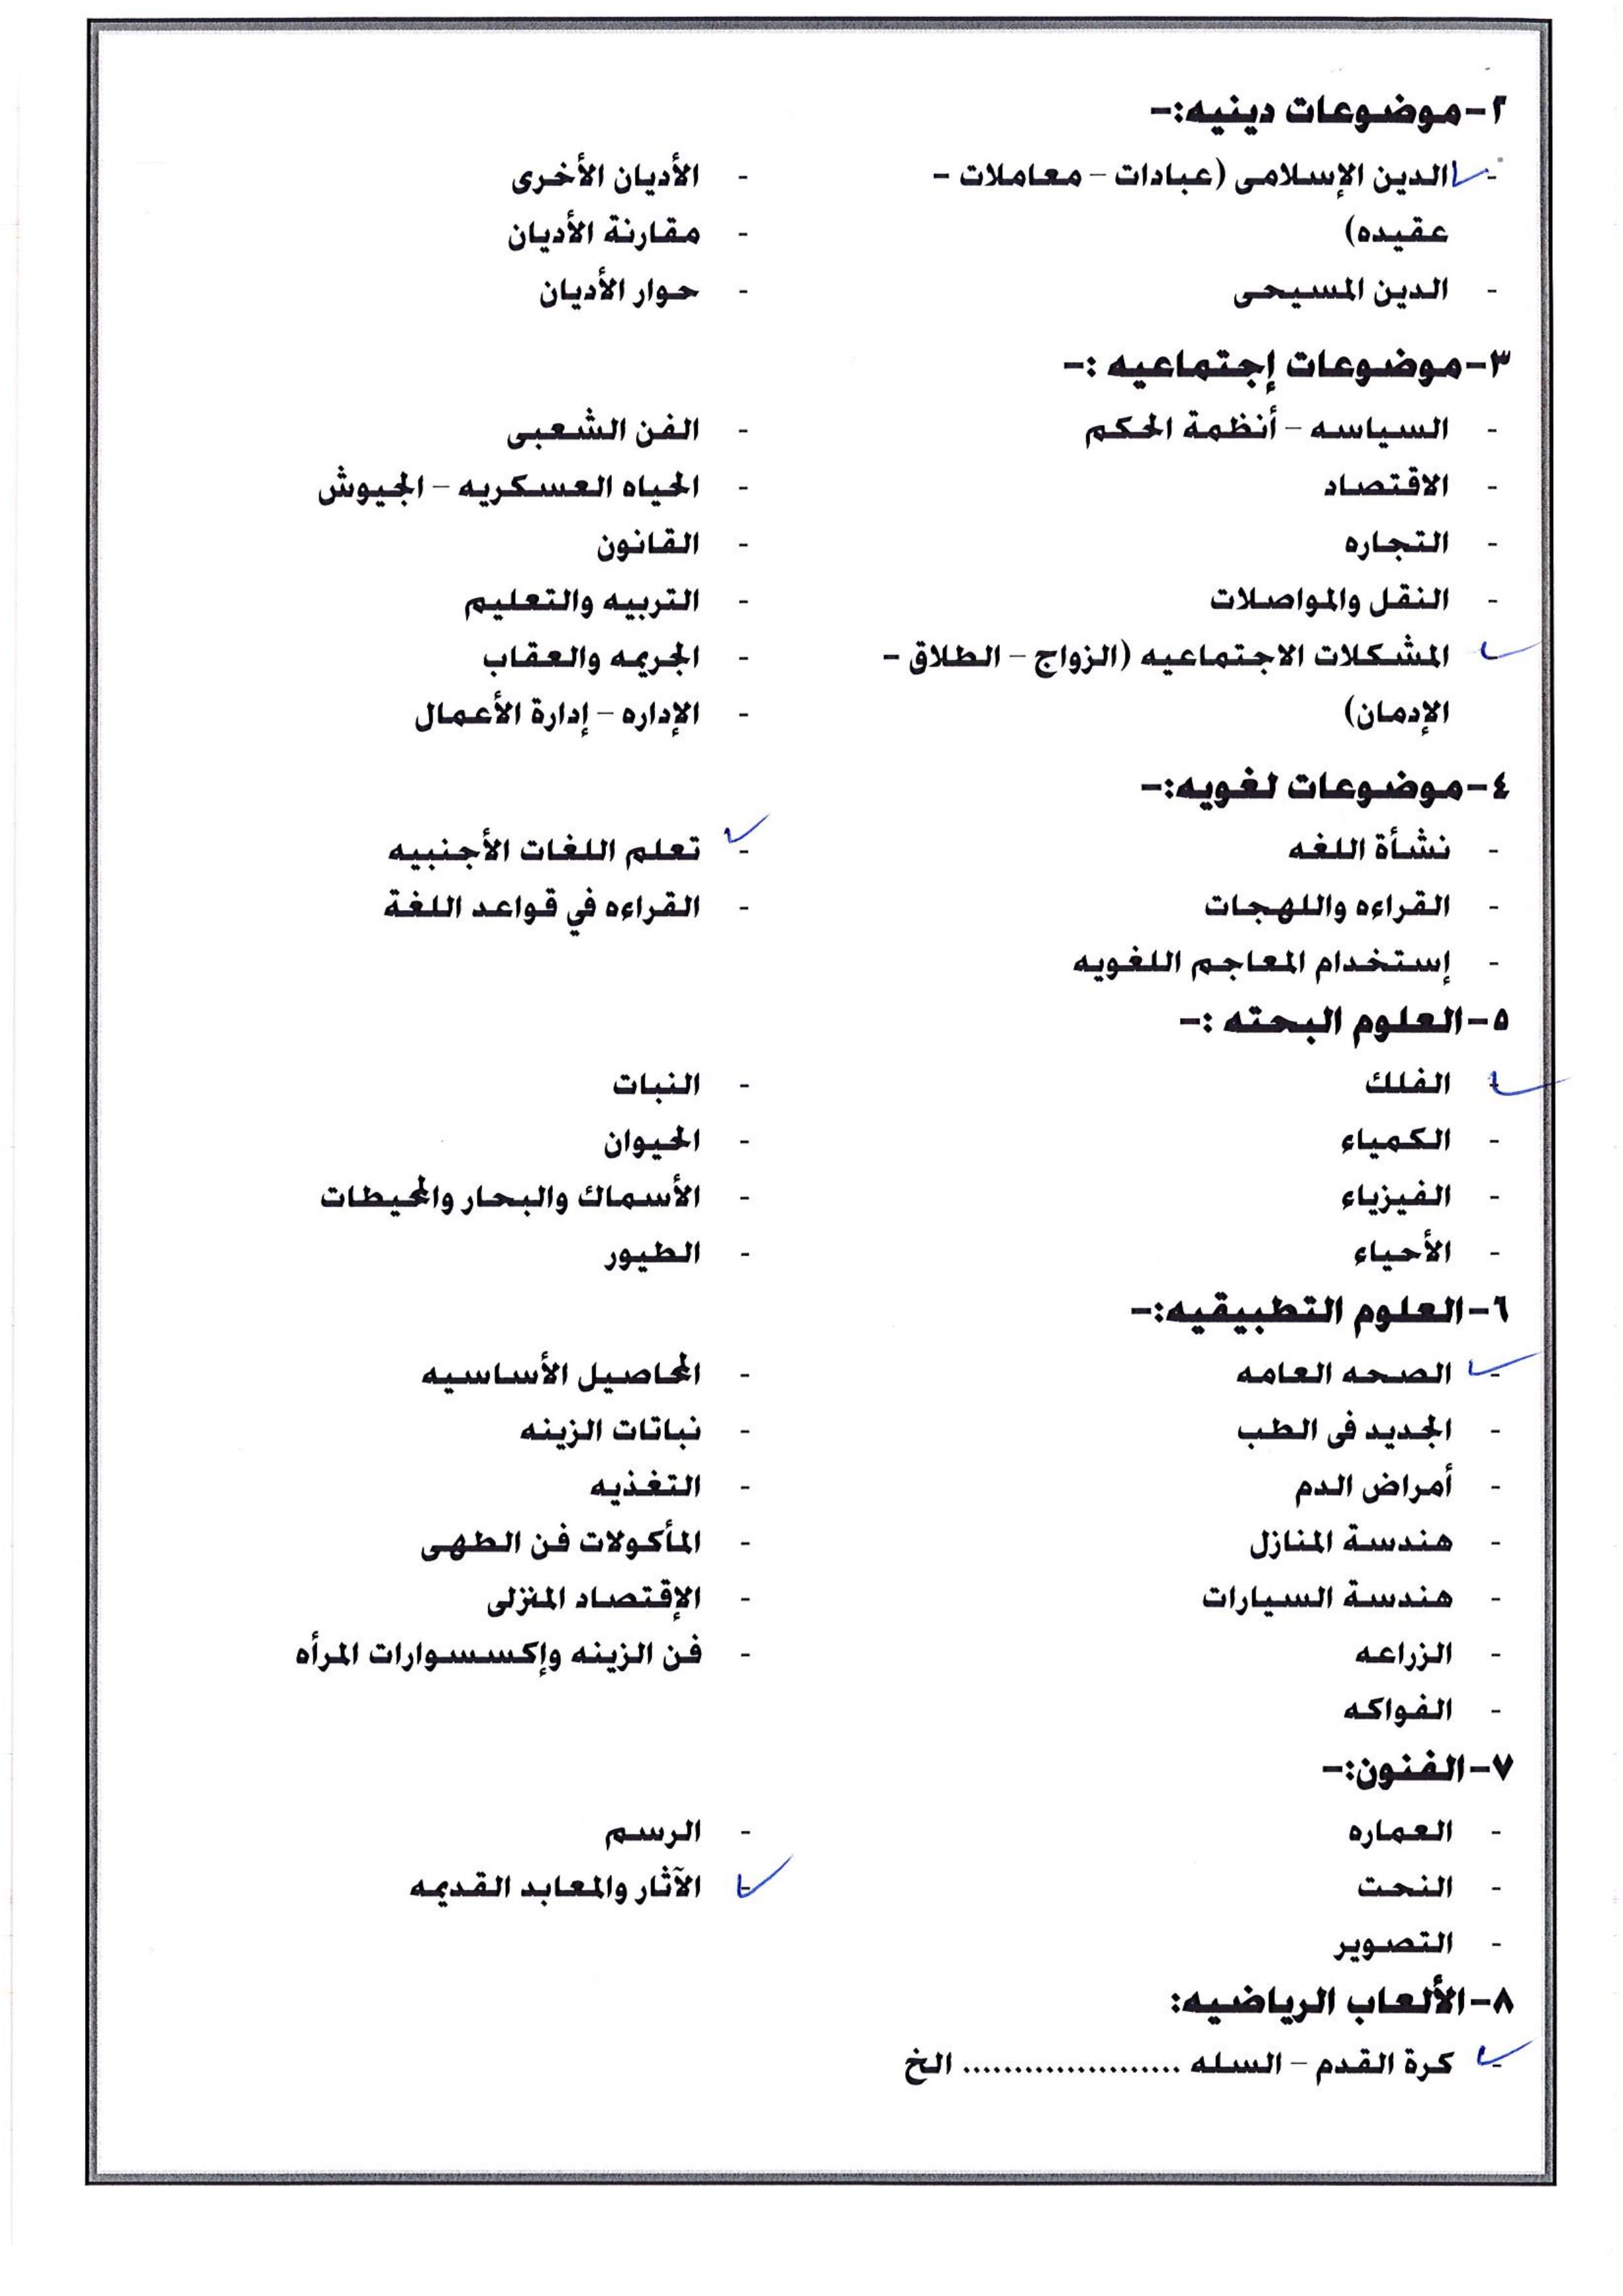 ٢-موضوعات دينيه:-
- الدين الإسلامى (عبادات – معاملات –
عقيده)
- الدين المسيحى
- الأديان الأخرى
- مقارنة الأديان
- حوار الأديان
٣-موضوعات إجتماعيه :-
- السياسه – أنظمة الحكم
- الاقتصاد
- التجاره
- النقل والمواصلات
المشكلات الاجتماعيه (الزواج – الطلاق –
الإدمان)
- الفن الشعبى
- الحياه العسكريه – الجيوش
- القانون
- التربيه والتعليم
- الجريمه والعقاب
- الإداره – إدارة الأعمال
٤-موضوعات لغويه:-
- نشأة اللغه
- القراءه واللهجات
- إستخدام المعاجم اللغويه
- تعلم اللغات الأجنبيه
- القراءه في قواعد اللغة
٥-العلوم البحته :-
- الفلك
- الكمياء
- الفيزياء
- الأحياء
- النبات
- الحيوان
- الأسماك والبحار والمحيطات
- الطيور
٦-العلوم التطبيقيه:-
- الصحه العامه
- الجديد فى الطب
- أمراض الدم
- هندسة المنازل
- هندسة السيارات
- الزراعه
- الفواكه
- المحاصيل الأساسيه
- نباتات الزينه
- التغذيه
- المأكولات فن الطهى
- الإقتصاد المنزلى
- فن الزينه وإكسسوارات المرأه
٧-الفنون:-
- العماره
- النحت
- التصوير
- الرسم
- الآثار والمعابد القديمه
٨-الألعاب الرياضيه:
- كرة القدم – السله ..................... الخ